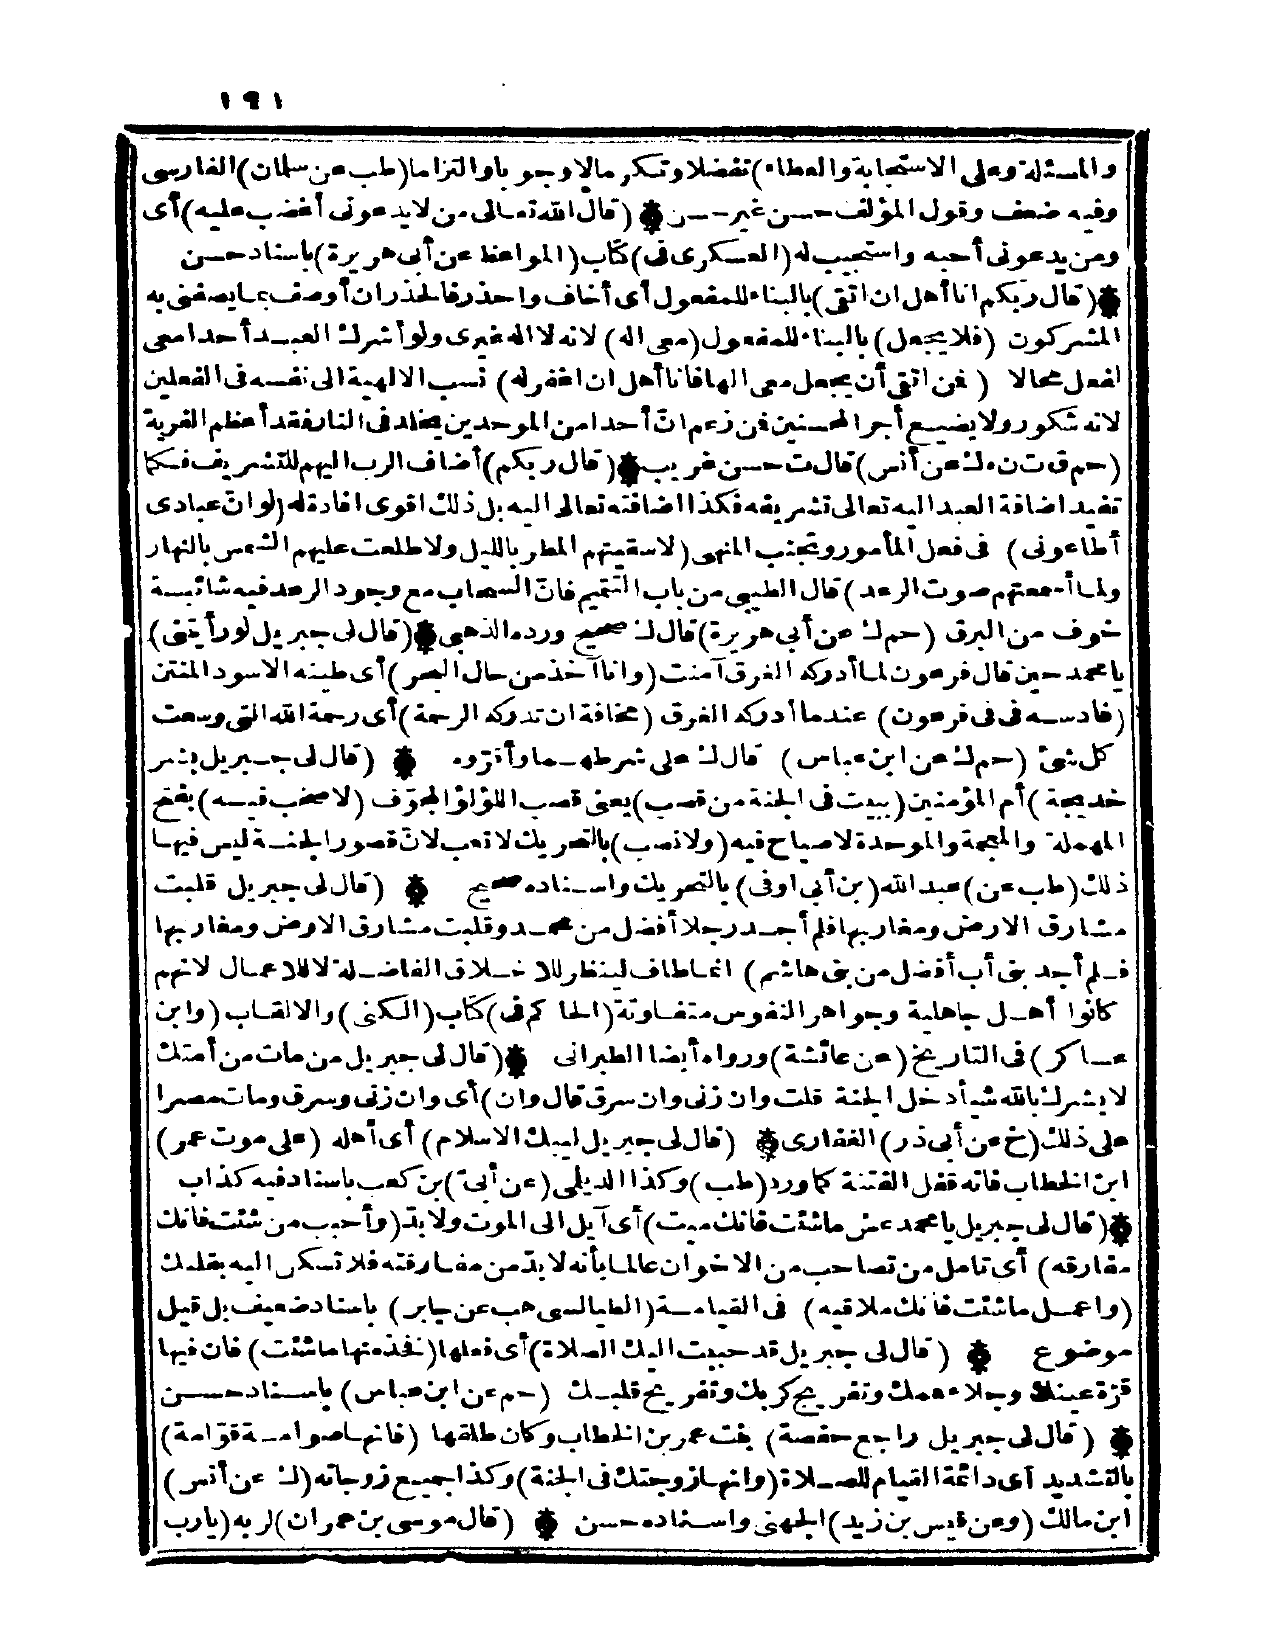 ١٩١
والمسئلة وعلى الاستجابة والعطاء) تفضلا وتكرمالا وجوبا والتزاما (طب عن سلمان) الفارسى
وفيه ضعف وقول المؤلف حسن غير حسن ۞ (قال الله تعالى من لا يدعونى أغضب عليه) أى
ومن يدعونى أحبه واستجيب له (العسكرى فى) كتاب (المواعظ عن أبى هريرة) باسناد حسن
۞ (قال ربكم انا أهل ان اتقى) بالبناء للمفعول أى أخاف واحذر فالحذر ان أوصف بما يصفنى به
المشركون (فلا يجعل) بالبناء للمفعول (معى اله) لانه لا اله غيرى ولو أشرك العبد أحدا معى
لفعل محالا (فمن اتقى أن يجعل معى الها فانا أهل ان اغفر له) نسب الالهية الى نفسه فى الفعلين
لانه شكور ولا يضيع أجر المحسنين فمن زعم انّ أحدا من الموحدين يخلد فى النار فقد أعظم الفرية
(حم ق ت ن ه ك عن أنس) قال ت حسن غريب ۞ (قال ربكم) أضاف الرب اليهم للتشريف فكما
تفيد اضافة العبد اليه تعالى تشريفه فكذا اضافته تعالى اليه بل ذلك اقوى افادة له (لو انّ عبادى
أطاعونى) فى فعل المأمور وتجنب المنهى (لاسقيتهم المطر بالليل ولاطلعت عليهم الشمس بالنهار
ولما أسمعتهم صوت الرعد) قال الطيبى من باب التتميم فانّ السحاب مع وجود الرعد فيه شائبة
خوف من البرق (حم ك عن أبى هريرة) قال ك صحيح ورده الذهبى ۞ (قال لى جبريل لو رأيتنى)
يا محمد حين قال فرعون لما أدركه الغرق آمنت (وانا آخذ من حال البحر) أى طينه الاسود المنتن
(فادسه فى فى فرعون) عندما أدركه الغرق (مخافة ان تدركه الرحمة) أى رحمة الله التى وسعت
كل شئ (حم ك عن ابن عباس) قال ك على شرطهما وأقرّوه ۞ (قال لى جبريل بشر
خديجة) أم المؤمنين (ببيت فى الجنة من قصب) يعنى قصب اللؤلؤ المجوّف (لا صخب فيه) بفتح
المهملة والمعجمة والموحدة لا صياح فيه (ولا نصب) بالتحريك لا تعب لانّ قصور الجنة ليس فيها
ذلك (طب عن) عبد الله (بن أبى اوفى) بالتحريك واسناده صحيح ۞ (قال لى جبريل قلبت
مشارق الارض ومغاربها فلم أجد رجلا أفضل من محمد وقلبت مشارق الارض ومغاربها
فلم أجد بنى أب أفضل من بنى هاشم) انما طاف لينظر للاخلاق الفاضلة لا للاعمال لانهم
كانوا أهل جاهلية وجواهر النفوس متفاوتة (الحاكم فى) كتاب (الكنى) والالقاب (وابن
عساكر) فى التاريخ (عن عائشة) ورواه أيضا الطبرانى ۞ (قال لى جبريل من مات من أمتك
لا يشرك بالله شيأ دخل الجنة قلت وان زنى وان سرق قال وان) أى وان زنى وسرق ومات مصرا
على ذلك (خ عن أبى ذر) الغفارى ۞ (قال لى جبريل ليبك الاسلام) أى أهله (على موت عمر)
ابن الخطاب فانه قفل الفتنة كما ورد (طب) وكذا الديلى (عن أبىّ) بن كعب باسناد فيه كذاب
۞ (قال لى جبريل يا محمد عش ما شئت فانك ميت) أى آيل الى الموت ولا بدّ (وأحبب من شئت فانك
مفارقه) أى تامل من تصاحب من الاخوان عالما بأنه لا بدّ من مفارقته فلا تسكن اليه بقلبك
(واعمل ما شئت فانك ملاقيه) فى القيامة (الطيالسى هب عن جابر) باسناد ضعيف بل قيل
موضوع ۞ (قال لى جبريل قد حببت اليك الصلاة) أى فعلها (فخذ منها ما شئت) فان فيها
قرّة عينك وجلاء همك وتفريج كربك وتفريح قلبك (حم عن ابن عباس) باسناد حسن
۞ (قال لى جبريل راجع حفصة) بنت عمر بن الخطاب وكان طلقها (فانها صوامة قوّامة)
بالتشديد أى دائمة القيام للصلاة (وانها زوجتك فى الجنة) وكذا جميع زوجاته (ك عن أنس)
ابن مالك (وعن قيس بن زيد) الجهنى واسناده حسن ۞ (قال موسى بن عمران) لربه (يا رب